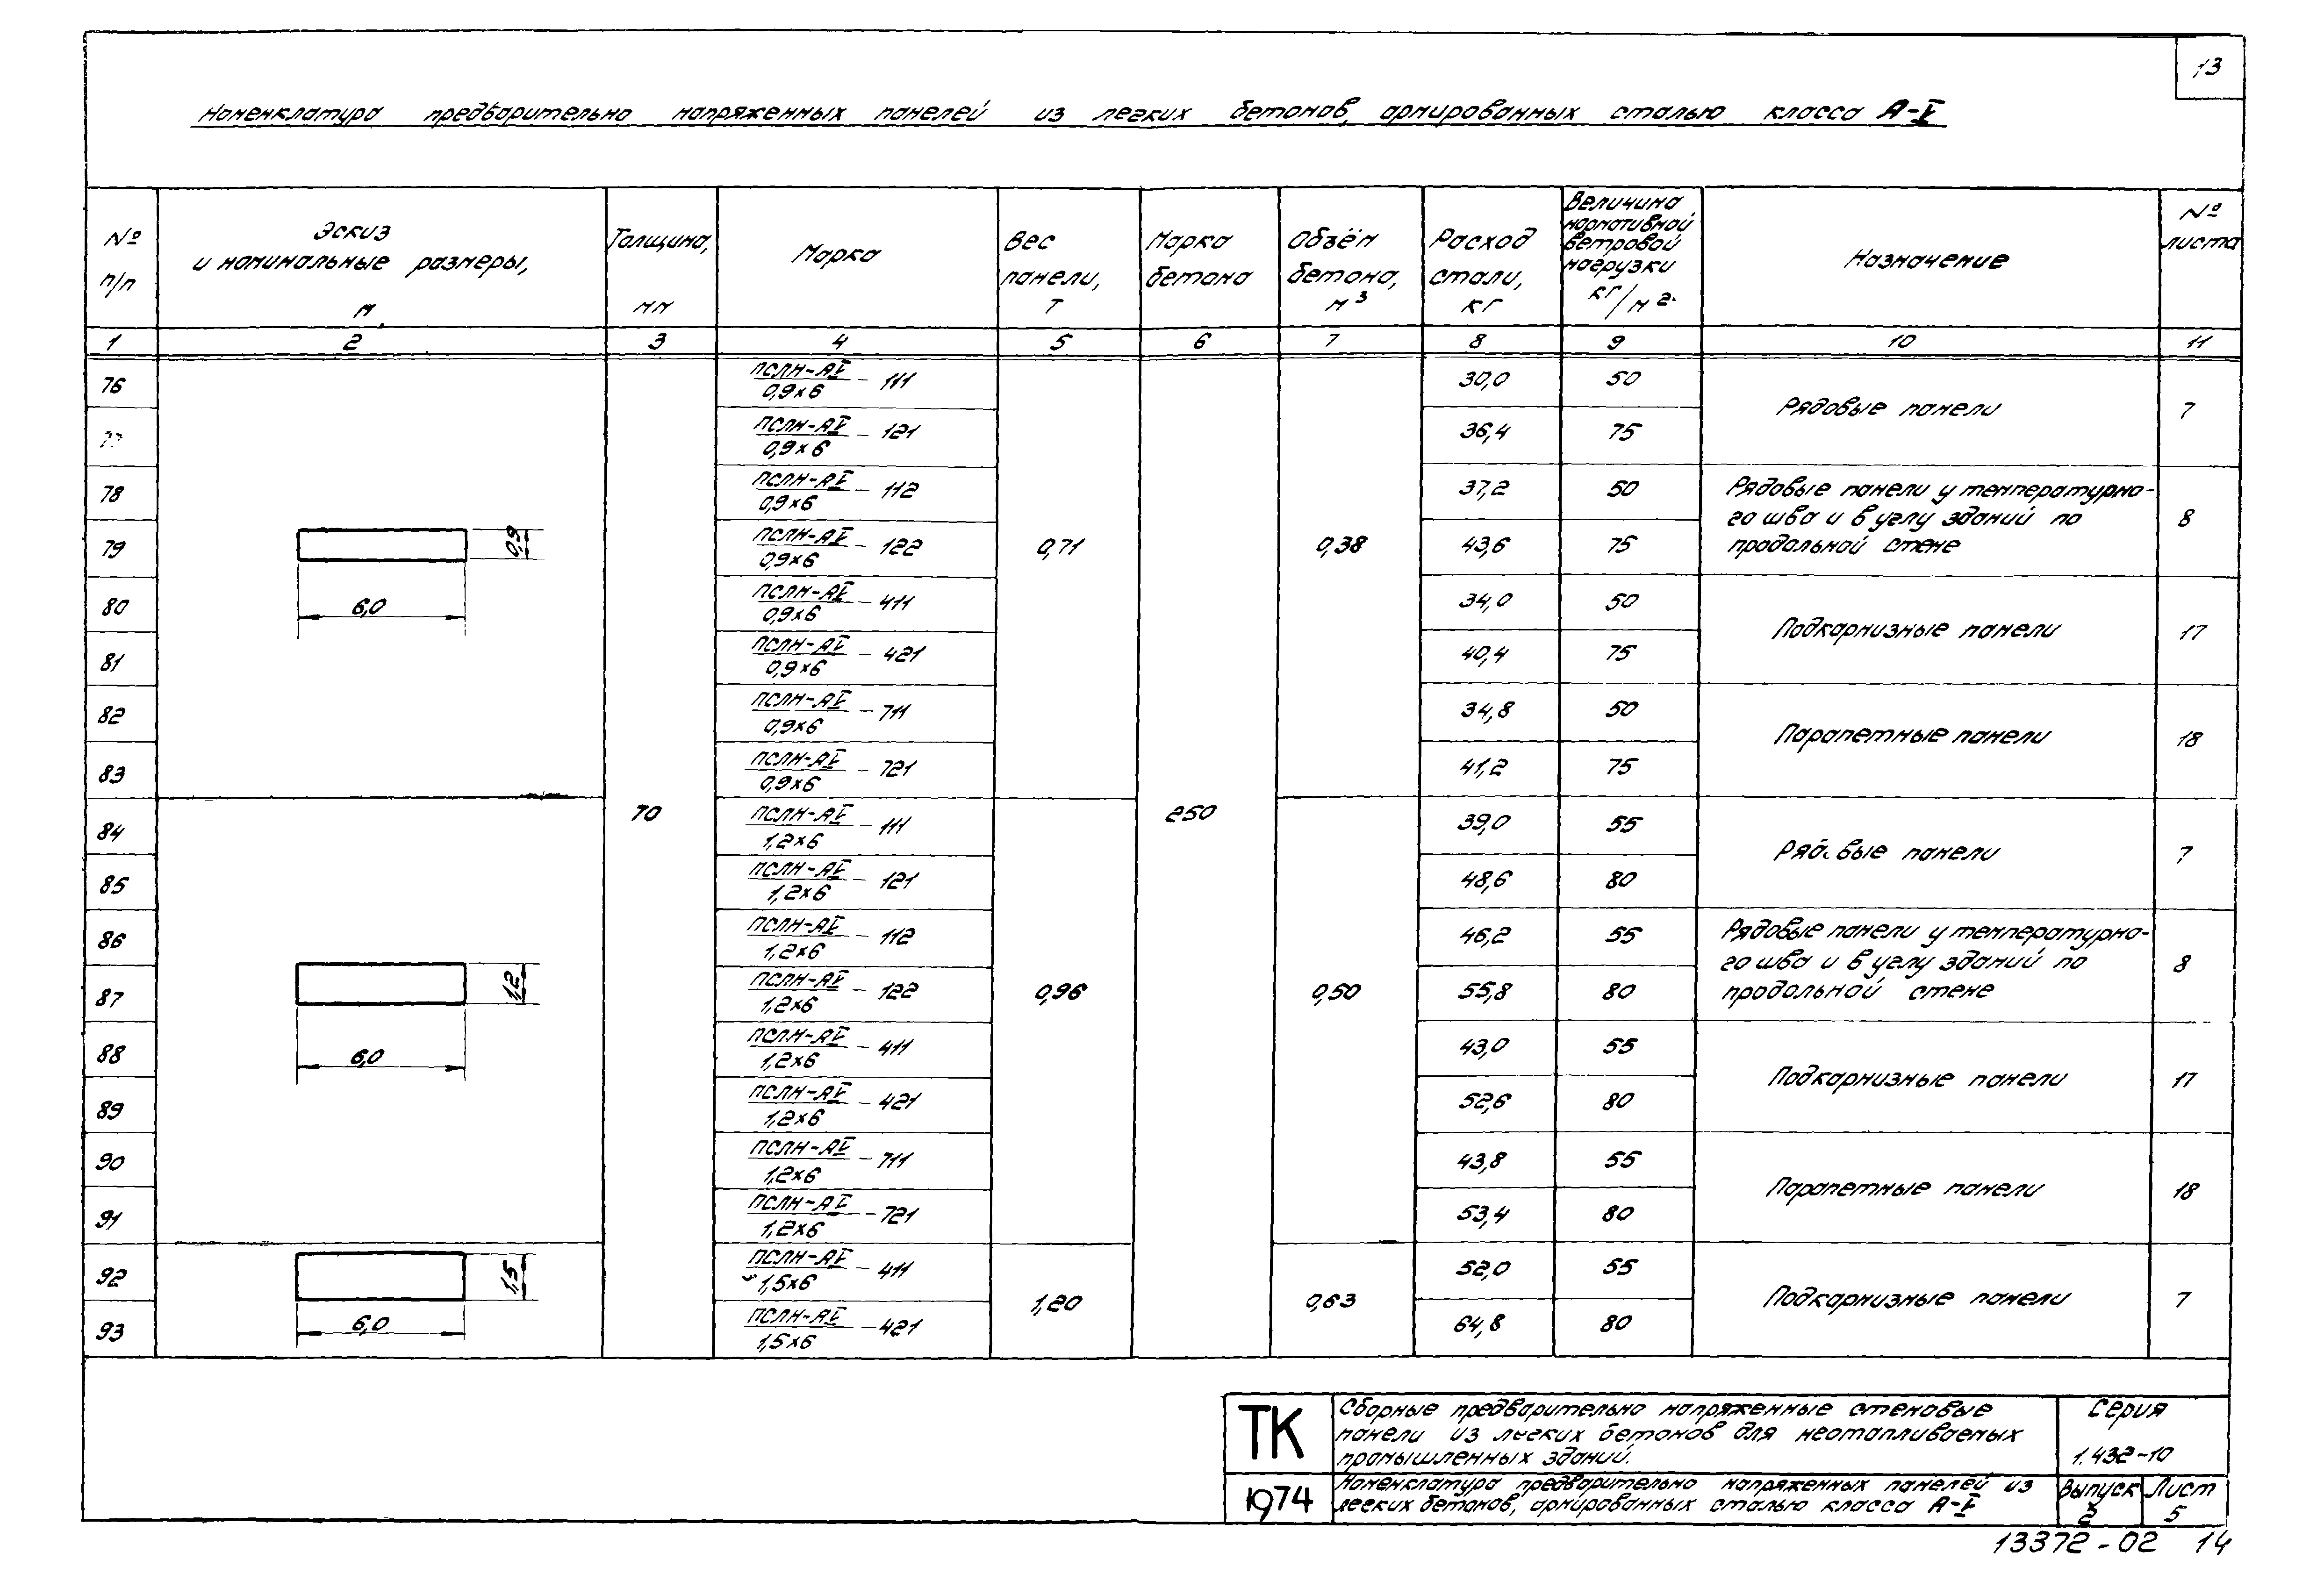 13
Номенклатура предварительно напряженных панелей из легких бетонов, армированных сталью класса А-V
№ п/п
Эскиз и номинальные размеры, м
Толщина, мм
Марка
Вес панели, т
Марка бетона
Объём бетона, м³
Расход стали, кг
Величина нормативной ветровой нагрузки кг/м²
Назначение
№ листа
1 2 3 4 5 6 7 8 9 10 11
76 ПСЛН-АV/0,9×6 - 111 30,0 50 Рядовые панели 7
ПСЛН-АV/0,9×6 - 121 36,4 75
78 ПСЛН-АV/0,9×6 - 112 37,2 50 Рядовые панели у температурно-
го шва и в углу зданий по 8
продольной стене
79 0,9 ПСЛН-АV/0,9×6 - 122 0,71 0,38 43,6 75
80 6,0 ПСЛН-АV/0,9×6 - 411 34,0 50 Подкарнизные панели 17
81 ПСЛН-АV/0,9×6 - 421 40,4 75
82 ПСЛН-АV/0,9×6 - 711 34,8 50 Парапетные панели 18
83 ПСЛН-АV/0,9×6 - 721 41,2 75
70 250
84 ПСЛН-АV/1,2×6 - 111 39,0 55 Рядовые панели 7
85 ПСЛН-АV/1,2×6 - 121 48,6 80
86 ПСЛН-АV/1,2×6 - 112 46,2 55 Рядовые панели у температурно-
го шва и в углу зданий по 8
продольной стене
87 1,2 ПСЛН-АV/1,2×6 - 122 0,96 0,50 55,8 80
88 6,0 ПСЛН-АV/1,2×6 - 411 43,0 55 Подкарнизные панели 17
89 ПСЛН-АV/1,2×6 - 421 52,6 80
90 ПСЛН-АV/1,2×6 - 711 43,8 55 Парапетные панели 18
91 ПСЛН-АV/1,2×6 - 721 53,4 80
92 1,5 ПСЛН-АV/1,5×6 - 411 1,20 0,63 52,0 55 Подкарнизные панели 7
93 6,0 ПСЛН-АV/1,5×6 - 421 64,8 80
ТК
Сборные предварительно напряженные стеновые
панели из легких бетонов для неотапливаемых
промышленных зданий.
Серия
1.432-10
1974
Номенклатура предварительно напряженных панелей из
легких бетонов, армированных сталью класса А-V
Выпуск 2
Лист 5
13372-02 14